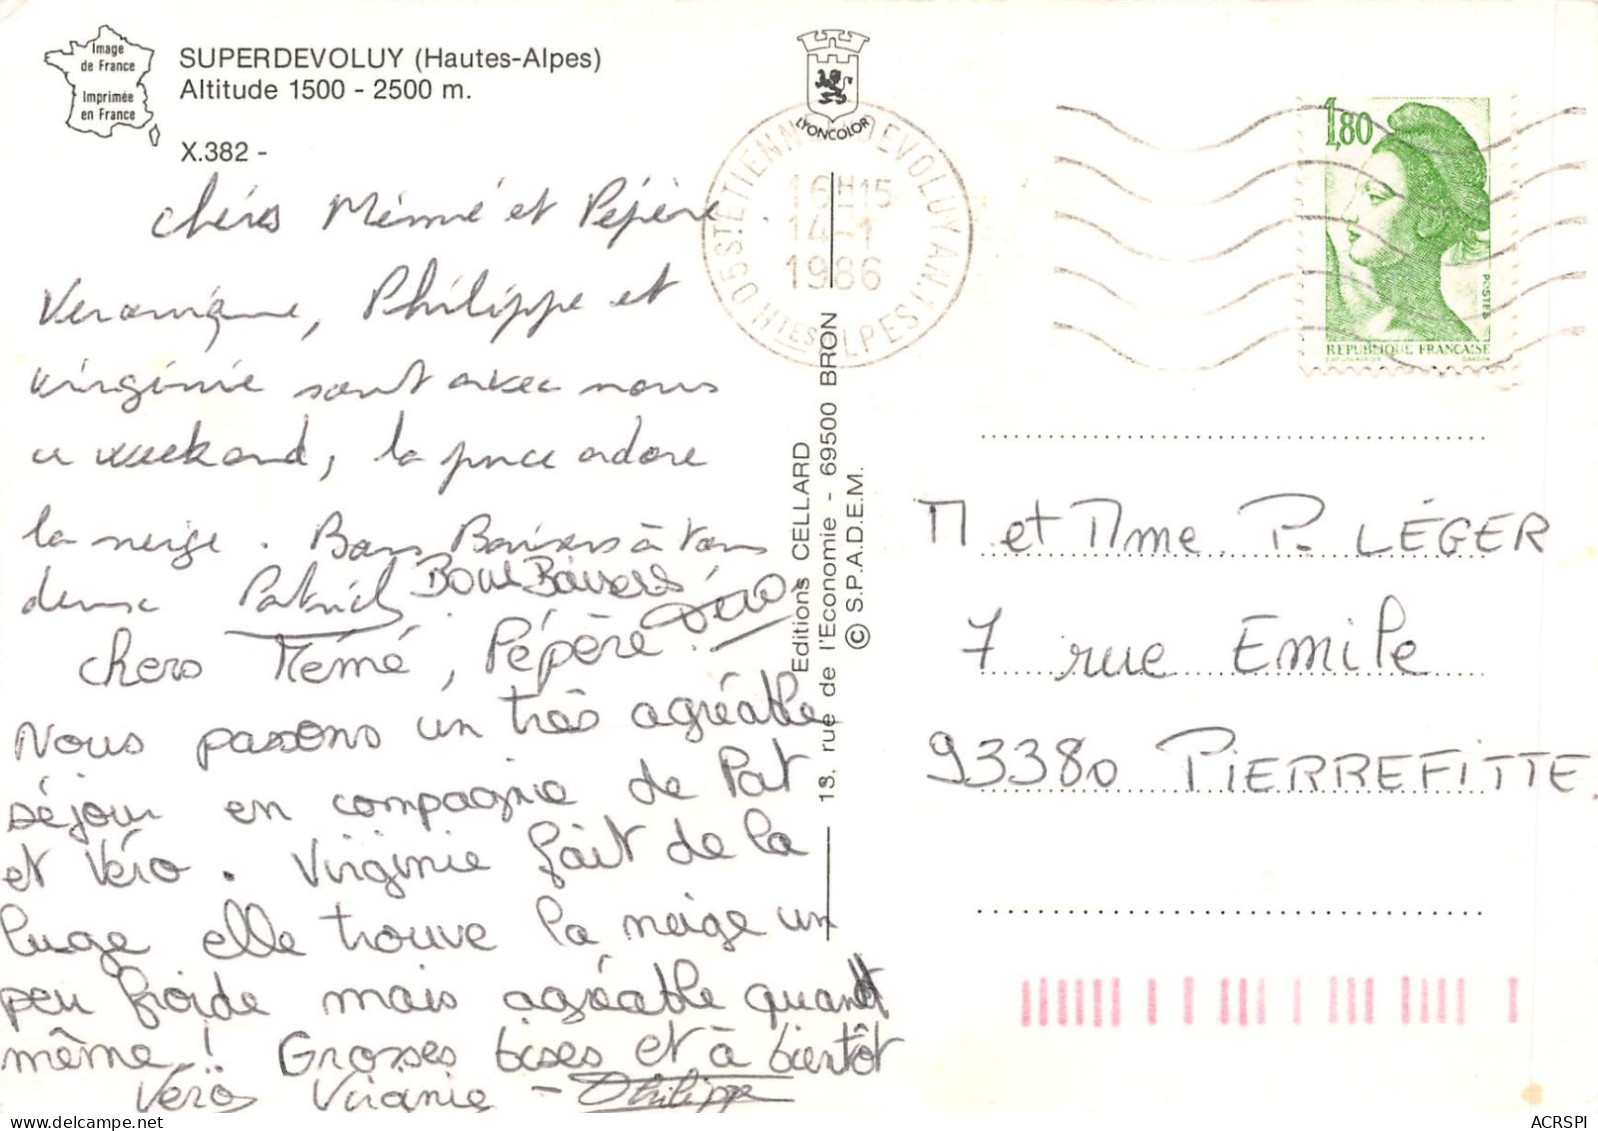 Image
de France
Imprimée
en France
SUPERDEVOLUY (Hautes-Alpes)
Altitude 1500 - 2500 m.
X.382 -
LYONCOLOR
05 ST ETIENNE EN DEVOLUY AN.1
HTES ALPES
16H15
14-1
1986
1,80
POSTES
REPUBLIQUE FRANÇAISE
chers Mémé et Pépère
Veronique, Philippe et
Virginie sont avec nous
ce weekend, la puce adore
la neige. Bons Baisers à vous
deux Patrick Bons Baisers
Véro
chers Mémé, Pépère!
Nous passons un très agréable
séjour en compagnie de Pat
et Véro. Virginie fait de la
luge elle trouve la neige un
peu froide mais agréable quand
même! Grosses bises et à bientôt
Véro Virginie - Philippe
Editions CELLARD
13, rue de l'Economie - 69500 BRON
© S.P.A.D.E.M.
M et Mme P. LÉGER
7 rue Emile
93380 PIERREFITTE.
ACRSPI